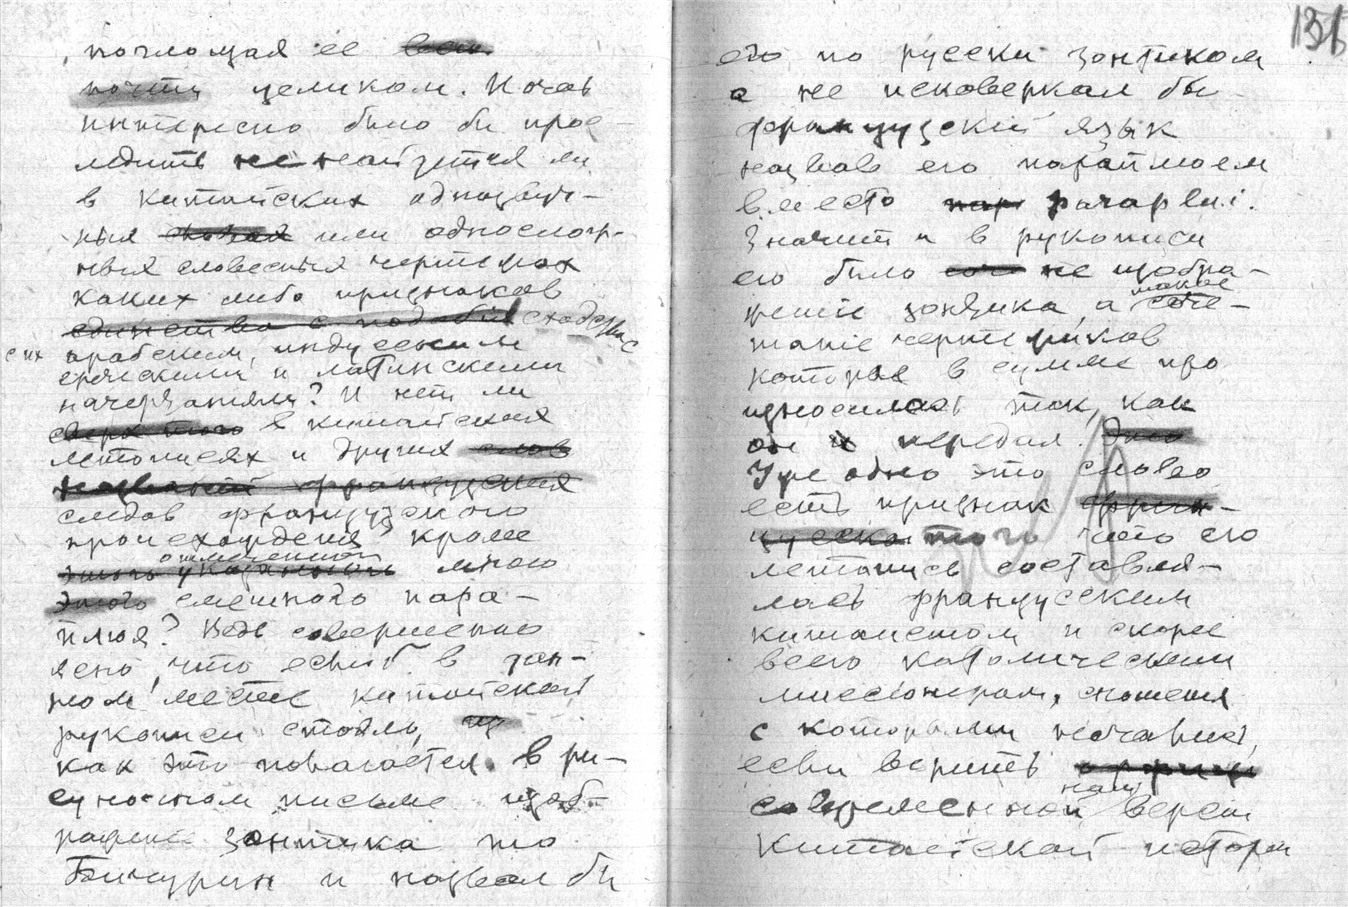 поглощая ее всю
почти целиком. И очень
интересно было бы прос-
ледить не найдутся ли
в китайских однозвуч-
ных или однослож-
ных словесных чертежах
каких либо признаков
единства с подобн сходства
с их арабскими, индусскими
греческими и латинскими
начертаниями? И нет ли
сверх того в китайских
летописях и других слов
названий французских
следов французского
происхождения кроме
отмеченного
этого указанного мною
этого смешного пара-
плюя? Ведь совершенно
ясно, что если б в дан-
ном месте китайской
рукописи стояло,
как это полагается в ри-
суночном письме изоб-
ражение зонтика то
Бичурин и назвал бы
135
его по русски зонтиком
а не исковеркал бы
французскiй язык
назвав его параплюем
вместо пар
Значит и в рукописи
его было не изобра-
жение зонтика, а такое соче-
танiе чертежиков
которые в сумме про
износилась так, как
он и передал. Это
Уже одно это слово
есть признак франц-
цузско того что его
летопись составля-
лась французским
китаистом и скорее
всего католическим
миссiонером, сношения
с которыми начались,
если верить
нашей
современной версии
Китайской истории